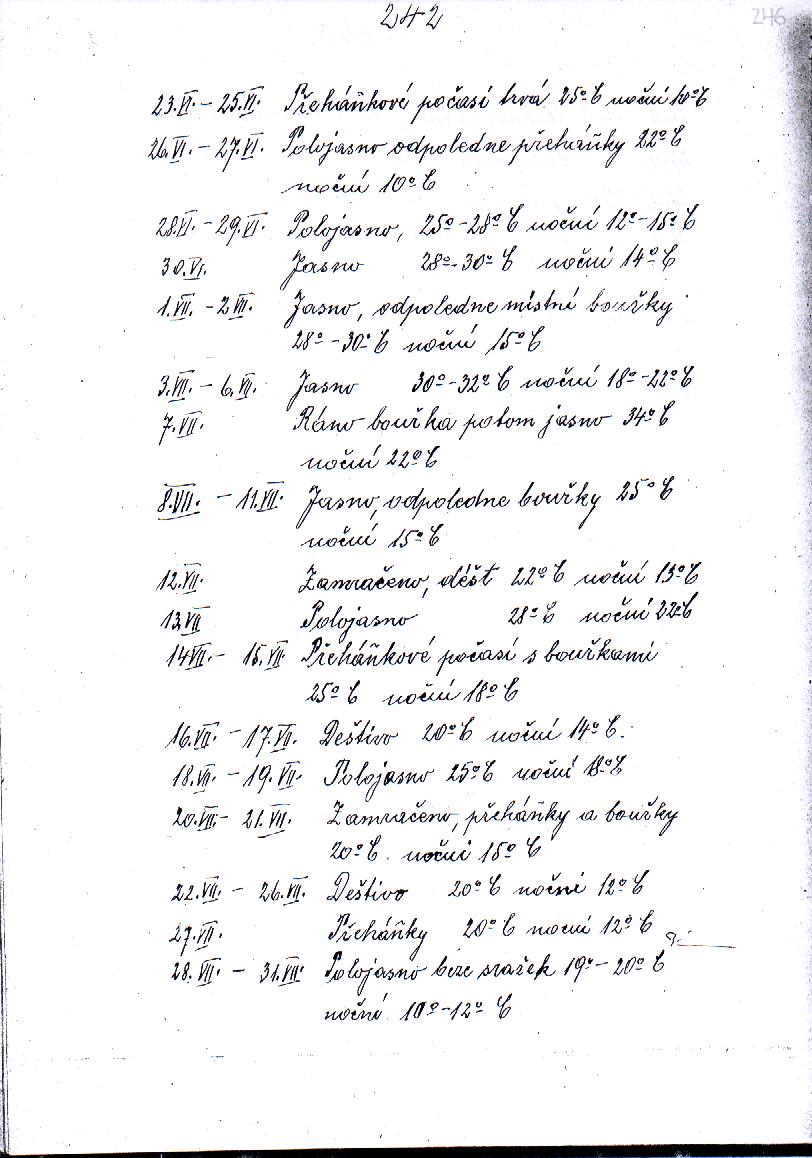 242
246
23.VI. - 25.VI. Přeháňkové počasí trvá 25º C noční 10º C
26.VI. - 27.VI. Polojasno odpoledne přeháňky 22º C
noční 10º C
28.VI. - 29.VI. Polojasno, 25º-28º C noční 12º-15º C
30.VI. Jasno 28º-30º C noční 14º C
1.VII. - 2.VII. Jasno, odpoledne místní bouřky
28º-30º C noční 15º C
3.VII. - 6.VII. Jasno 30º-32º C noční 18º-22º C
7.VII. Ráno bouřka potom jasno 34º C
noční 22º C
8.VII. - 11.VII. Jasno, odpoledne bouřky 25º C
noční 15º C
12.VII. Zamračeno, déšt 22º C noční 13º C
13.VII Polojasno 28º C noční 22º C
14VII. - 15.VII Přeháňkové počasí s bouřkami
25º C noční 18º C
16.VII. - 17.VII. Deštivo 20º C noční 14º C.
18.VII. - 19.VII. Polojasno 25º C noční 18º C
20.VII. - 21.VII. Zamračeno, přeháňky a bouřky
20º C. noční 15º C
22.VII. - 26.VII. Deštivo 20º C noční 12º C
27.VII. Přeháňky 20º C noční 12º C
28.VII. - 31.VII. Polojasno beze sražek 19º-20º C
noční 10º-12º C